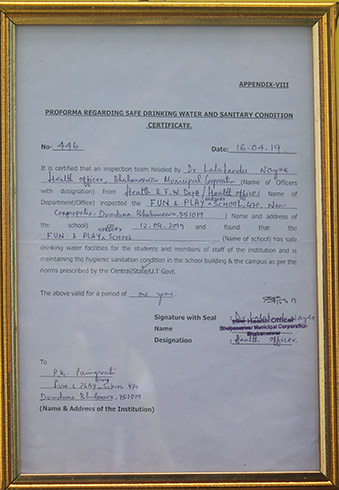 APPENDIX-VIII
PROFORMA REGARDING SAFE DRINKING WATER AND SANITARY CONDITION
CERTIFICATE.
No- 446 Date: 16-04-19
It is certified that an inspection team headed by Dr Lalatendu Nayak
Health officer, Bhubaneswar Municipal Corporation (Name of Officers
with designation) from Health & F.W Dept / Health officer Name of
Department/Office) inspected the FUN & PLAY SCHOOL, 470, Near
Dumduma Bhubaneswar, 751019 ( Name and address of
the school) 12.04.2019 and found that the
FUN & PLAY SCHOOL (Name of school) has safe
drinking water facilities for the students and members of staff of the institution and is
maintaining the hygienic sanitation condition in the school building & the campus as per the
norms prescribed by the Central/State/U.T Govt.
The above valid for a period of one year
Signature with Seal : Dr Lalatendu Nayak
Name Health Officer
Bhubaneswar Municipal Corporation
Bhubaneswar
Designation : Health officer.
To
P.K.
FUN & PLAY SCHOOL 470
Dumduma Bhubaneswar, 751019
(Name & Address of the Institution)